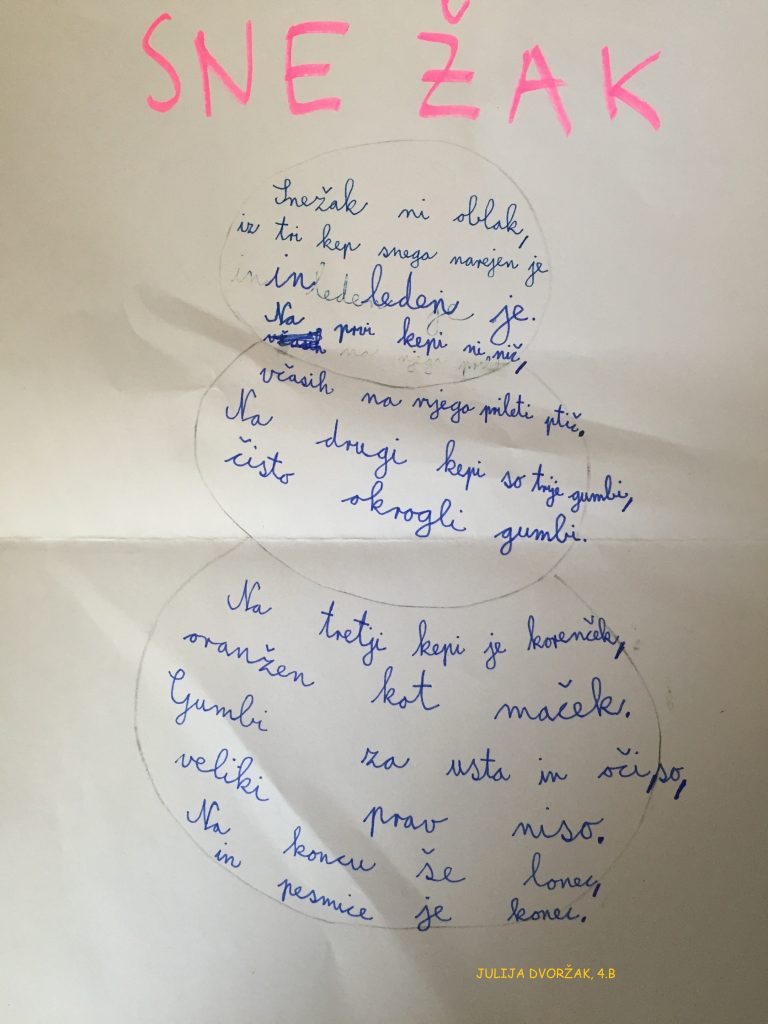 SNEŽAK
Snežak ni oblak,
iz tri kep snega narejen je
in leden je.
Na prvi kepi ni nič,
včasih na njega prileti ptič.
Na drugi kepi so trije gumbi,
čisto okrogli gumbi.
Na tretji kepi je korenček,
oranžen kot maček.
Gumbi za usta in oči so,
veliki prav niso.
Na koncu še lonec,
in pesmice je konec.
JULIJA DVORŽAK, 4.B